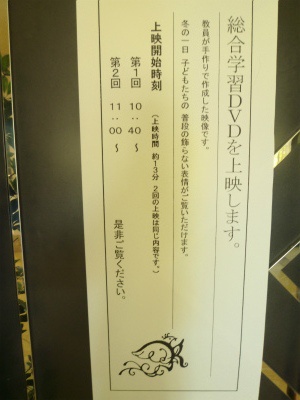 総合学習DVDを上映します。
教員が手作りで作成した映像です。
冬の一日 子どもたちの 普段の飾らない表情がご覧いただけます。
上映開始時刻 (上映時間 約13分 2回の上映は同じ内容です。)
第1回 10:40 ～
第2回 11:00 ～
是非ご覧ください。